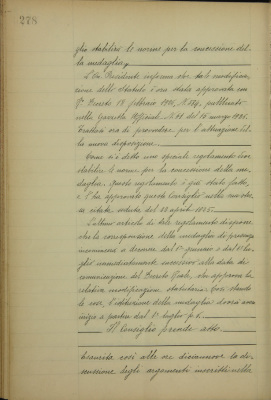 228
glia stabilire le norme per la concessione del-
la medaglia.
L'On. Presidente informa che tale modifica
zione dello Statuto è ora stata approvata con
R. Decreto 12 febbraio 1925, N. pubblicato
nella Gazzetta Ufficiale N. 61 del 16 marzo 1925.
Trattasi ora di provvedere per l'attuazione del-
la nuova disposizione.
Come si è detto uno speciale regolamento deve
stabilire le norme per la concessione della me-
daglia. Questo regolamento è già stato fatto,
e l'ha approvato questo Consiglio nella
citata seduta del 22 aprile 1925.
L'ultimo articolo di tale regolamento dispone
che la corresponsione delle medaglie di presenza
incomincerà a decorrere dal 1° gennaio o dal 1° lu-
glio immediatamente successivo alla data di
comunicazione del Decreto Reale, che approva la
relativa modificazione statutaria. Così stando
le cose, l'istituzione della medaglia dovrà avere
inizio a partire dal 1° luglio p. v.
Il Consiglio prende atto.
Esaurita così alle ore diciannove la di-
scussione degli argomenti inscritti nello